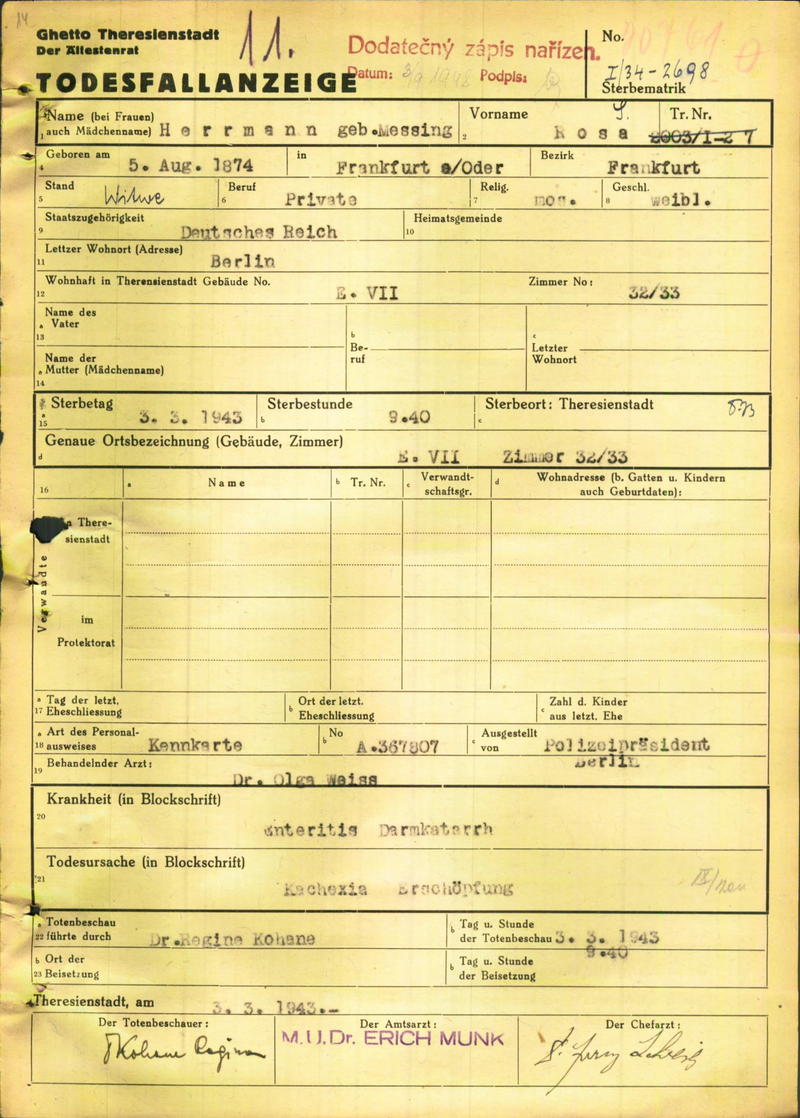 14
Ghetto Theresienstadt
Der Ältestenrat
11.
Dodatečný zápis nařízen.
Datum: Podpis:
No.
I/34-2698
Sterbematrik
TODESFALLANZEIGE
Name (bei Frauen)
1 auch Mädchenname) Herrmann geb.Messing
2 Vorname Rosa
Tr. Nr.
4 Geboren am 5. Aug. 1874 in Frankfurt a/Oder Bezirk Frankfurt
5 Stand Witwe 6 Beruf Private 7 Relig. mos. 8 Geschl. weibl.
9 Staatszugehörigkeit Deutsches Reich 10 Heimatsgemeinde
11 Lettzer Wohnort (Adresse) Berlin
12 Wohnhaft in Therensienstadt Gebäude No. E. VII Zimmer No: 32/33
Name des
a Vater
13
b Be-
ruf
c Letzter
Wohnort
Name der
a Mutter (Mädchenname)
14
a Sterbetag
15 3. 3. 1943 b Sterbestunde 9.40 c Sterbeort: Theresienstadt
d Genaue Ortsbezeichnung (Gebäude, Zimmer) E. VII Zimmer 32/33
16 a Name b Tr. Nr. c Verwandt-
schaftsgr. d Wohnadresse (b. Gatten u. Kindern
auch Geburtdaten):
Verwandte
a There-
sienstadt
im
Protektorat
a Tag der letzt.
17 Eheschliessung
b Ort der letzt.
Eheschliessung
c Zahl d. Kinder
aus letzt. Ehe
a Art des Personal-
18 ausweises Kennkarte
b No A.367807
c Ausgestellt
von Polizeipräsident
Berlin
19 Behandelnder Arzt: Dr. Olga Weiss
Krankheit (in Blockschrift)
20
Enteritis Darmkatarrh
Todesursache (in Blockschrift)
21
Kachexia Erschöpfung
a Totenbeschau
22 führte durch Dr.Regine Kohane
b Tag u. Stunde
der Totenbeschau 3. 3. 1943
9.40
b Ort der
23 Beisetzung
b Tag u. Stunde
der Beisetzung
Theresienstadt, am 3. 3. 1943.-
Der Totenbeschauer: Der Amtsarzt: Der Chefarzt:
Kohane Regina
M.U.Dr. ERICH MUNK